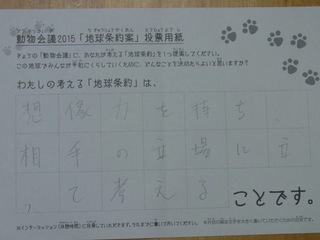 動物会議2015「地球条約案」投票用紙
きょうの「動物会議」に、あなたが考える「地球条約」を1つ提案してください。
この地球でみんなが平和にくらしていくために、どんなことを決めたらよいと思いますか?
わたしの考える「地球条約」は、
想像力を持ち、
相手の立場に立
って考える
ことです。